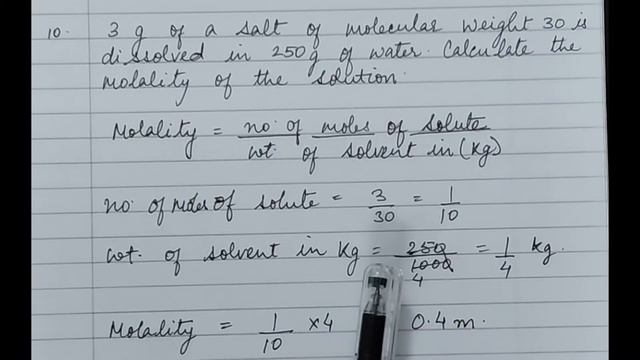 10. 3 g of a salt of molecular weight 30 is
dissolved in 250g of water. Calculate the
molality of the solution.
Molality = no. of moles of solute / wt. of solvent in (kg)
no. of moles of solute = 3/30 = 1/10
wt. of solvent in kg = 250/1000 4 = 1/4 kg.
Molality = 1/10 ×4 0.4 m.